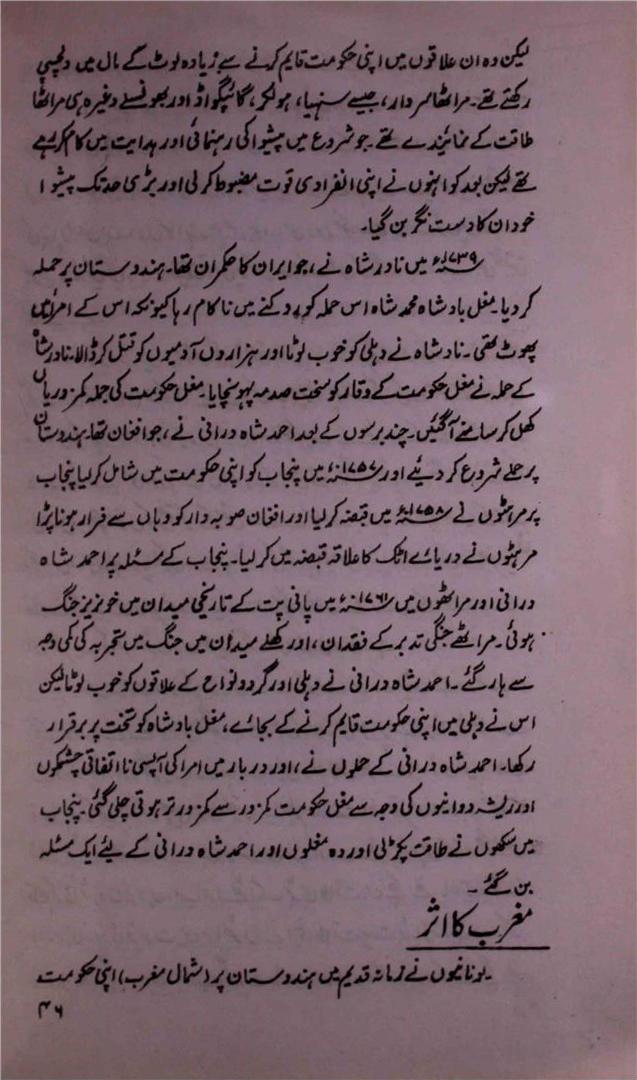 لیکن وہ ان علاقوں میں اپنی حکومت قایم کرنے سے زیادہ لوٹ کے مال میں دلچسپی
رکھتے تھے۔ مراٹھا سردار، جیسے سندھیا، ہولکر، گائیکواڈ اور بھونسلے وغیرہ ہی مراٹھا
طاقت کے نمائندے تھے۔ جو شروع میں پیشوا کی رہنمائی اور ہدایت میں کام کر رہے
تھے لیکن بعد کو انہوں نے اپنی انفرادی قوت مضبوط کر لی اور بڑی حد تک پیشوا
خود ان کا دست نگر بن گیا۔
۱۷۳۹ء میں نادر شاہ نے، جو ایران کا حکمران تھا۔ ہندوستان پر حملہ
کر دیا۔ مغل بادشاہ محمد شاہ اس حملہ کو روکنے میں ناکام رہا کیونکہ اس کے امرا میں
پھوٹ تھی۔ نادشاہ نے دہلی کو خوب لوٹا اور ہزاروں آدمیوں کو قتل کر ڈالا۔ نادر شاہ
کے حملہ نے مغل حکومت کے وقار کو سخت صدمہ پہونچایا۔ مغل حکومت کی جملہ کمزوریاں
کھل کر سامنے آگئیں۔ چند برسوں کے بعد احمد شاہ درانی نے، جو افغان تھا۔ ہندوستان
پر حملے شروع کر دیئے اور ۱۷۵۷ء میں پنجاب کو اپنی حکومت میں شامل کر لیا پنجاب
پر مرہٹوں نے ۱۷۵۸ء میں قبضہ کر لیا اور افغان صوبہ دار کو وہاں سے فرار ہونا پڑا
مرہٹوں نے دریائے اٹک کا علاقہ قبضہ میں کر لیا۔ پنجاب کے مسئلہ پر احمد شاہ
درانی اور مراٹھوں میں ۱۷۶۱ء میں پانی پت کے تاریخی میدان میں خونریز جنگ
ہوئی۔ مراٹھے جنگی تدبر کے فقدان، اور کھلے میدان میں جنگ میں تجربہ کی کمی کی وجہ
سے ہار گئے۔ احمد شاہ درانی نے دہلی اور گرد و نواح کے علاقوں کو خوب لوٹا لیکن
اس نے دہلی میں اپنی حکومت قایم کرنے کے بجائے، مغل بادشاہ کو تخت پر برقرار
رکھا۔ احمد شاہ درانی کے حملوں نے، اور دربار میں امرا کی آپسی نا اتفاقی چشمکوں
اور ریشہ دوانیوں کی وجہ سے مغل حکومت کمزور سے کمزور تر ہوتی چلی گئی۔ پنجاب
میں سکھوں نے طاقت پکڑ لی اور وہ مغلوں اور احمد شاہ درانی کے لیئے ایک مسئلہ
بن گئے۔
مغرب کا اثر
یونانیوں نے زمانہ قدیم میں ہندوستان پر (شمال مغرب) اپنی حکومت
۴۶